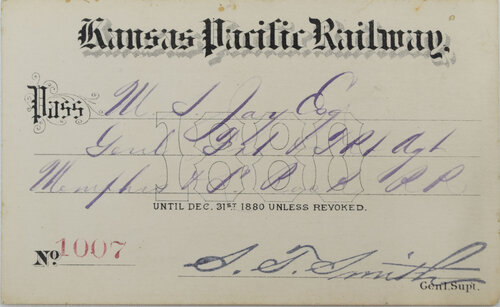 Kansas Pacific Railway.
Pass M S Jay Esq
Genl Frt & Tkt Agt
Memphis & L R R R
1880
UNTIL DEC. 31ST 1880 UNLESS REVOKED.
No. 1007
S. T. Smith
Genl. Supt.